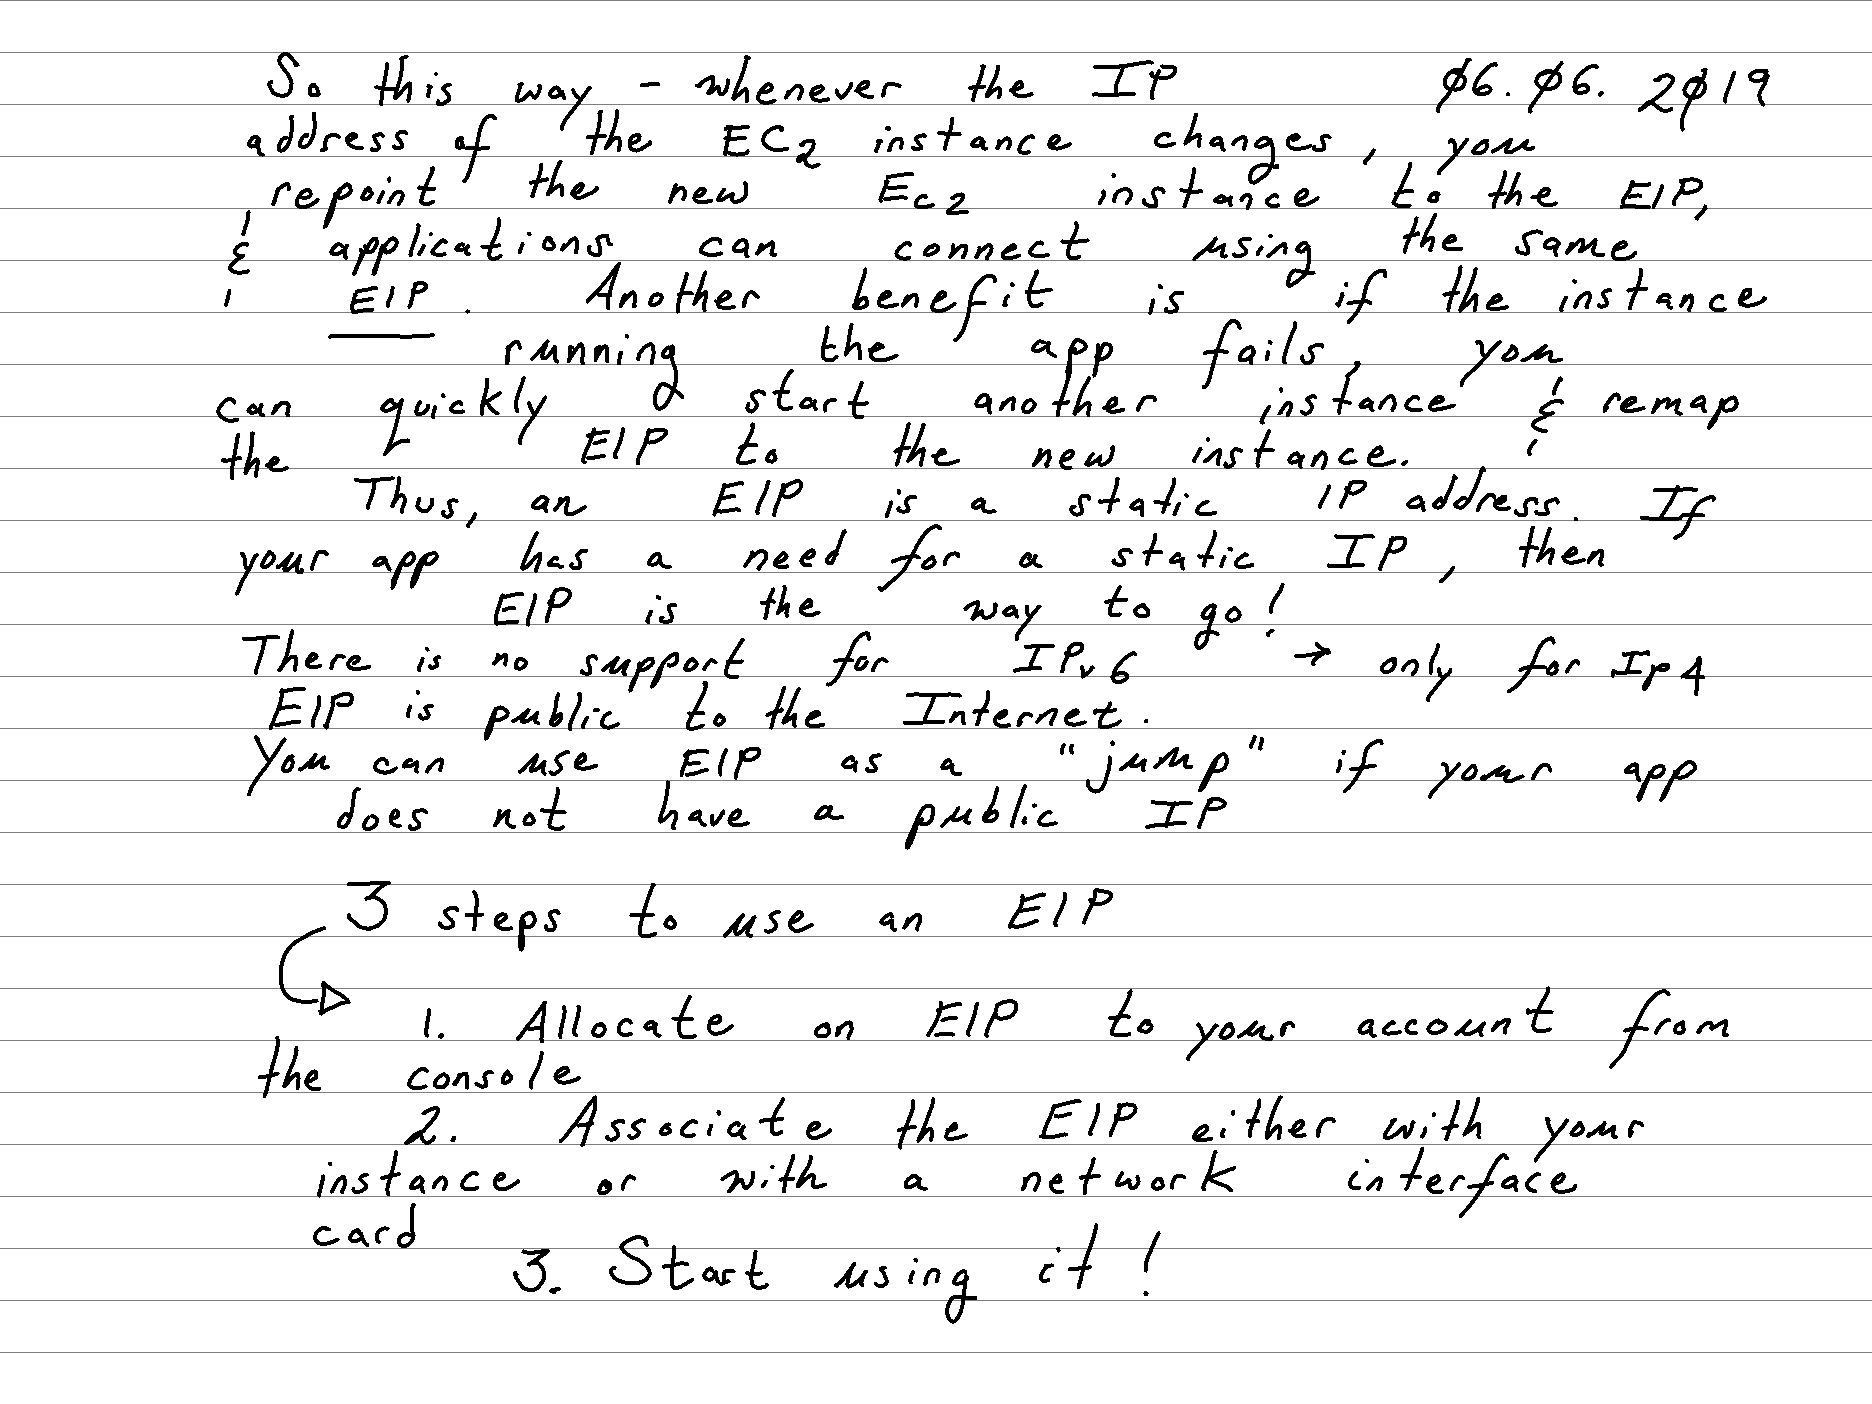 So this way - whenever the IP 06.06. 2019
address of the EC2 instance changes, you
repoint the new Ec2 instance to the EIP,
& applications can connect using the same
EIP. Another benefit is if the instance
running the app fails, you
can quickly start another instance & remap
the EIP to the new instance.
Thus, an EIP is a static IP address. If
your app has a need for a static IP, then
EIP is the way to go!
There is no support for IPv6 → only for Ip4
EIP is public to the Internet.
You can use EIP as a "jump" if your app
does not have a public IP
3 steps to use an EIP
1. Allocate on EIP to your account from
the console
2. Associate the EIP either with your
instance or with a network interface
card
3. Start using it!